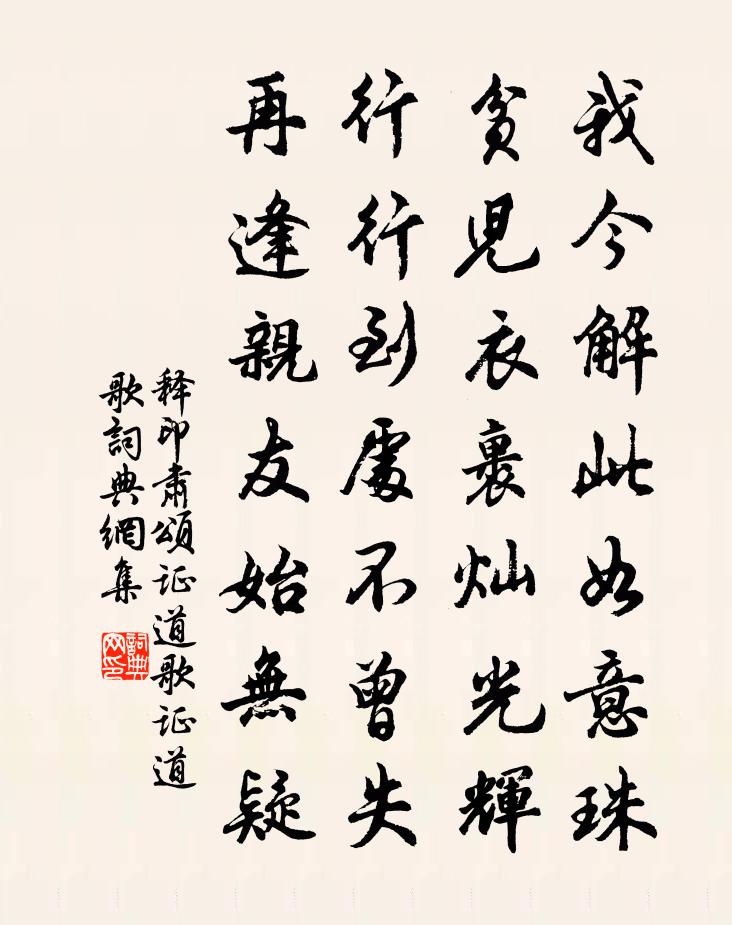 我今解此如意珠
貧兒衣裹灿光輝
行行到處不曾失
再逢親友始無疑
释印肃頌证道歌证道
歌詞典網集
詞典
网印